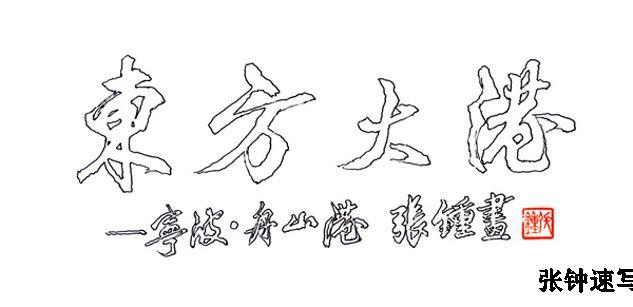 東方大港
一寧波·舟山港 張鍾畫
张钟速写